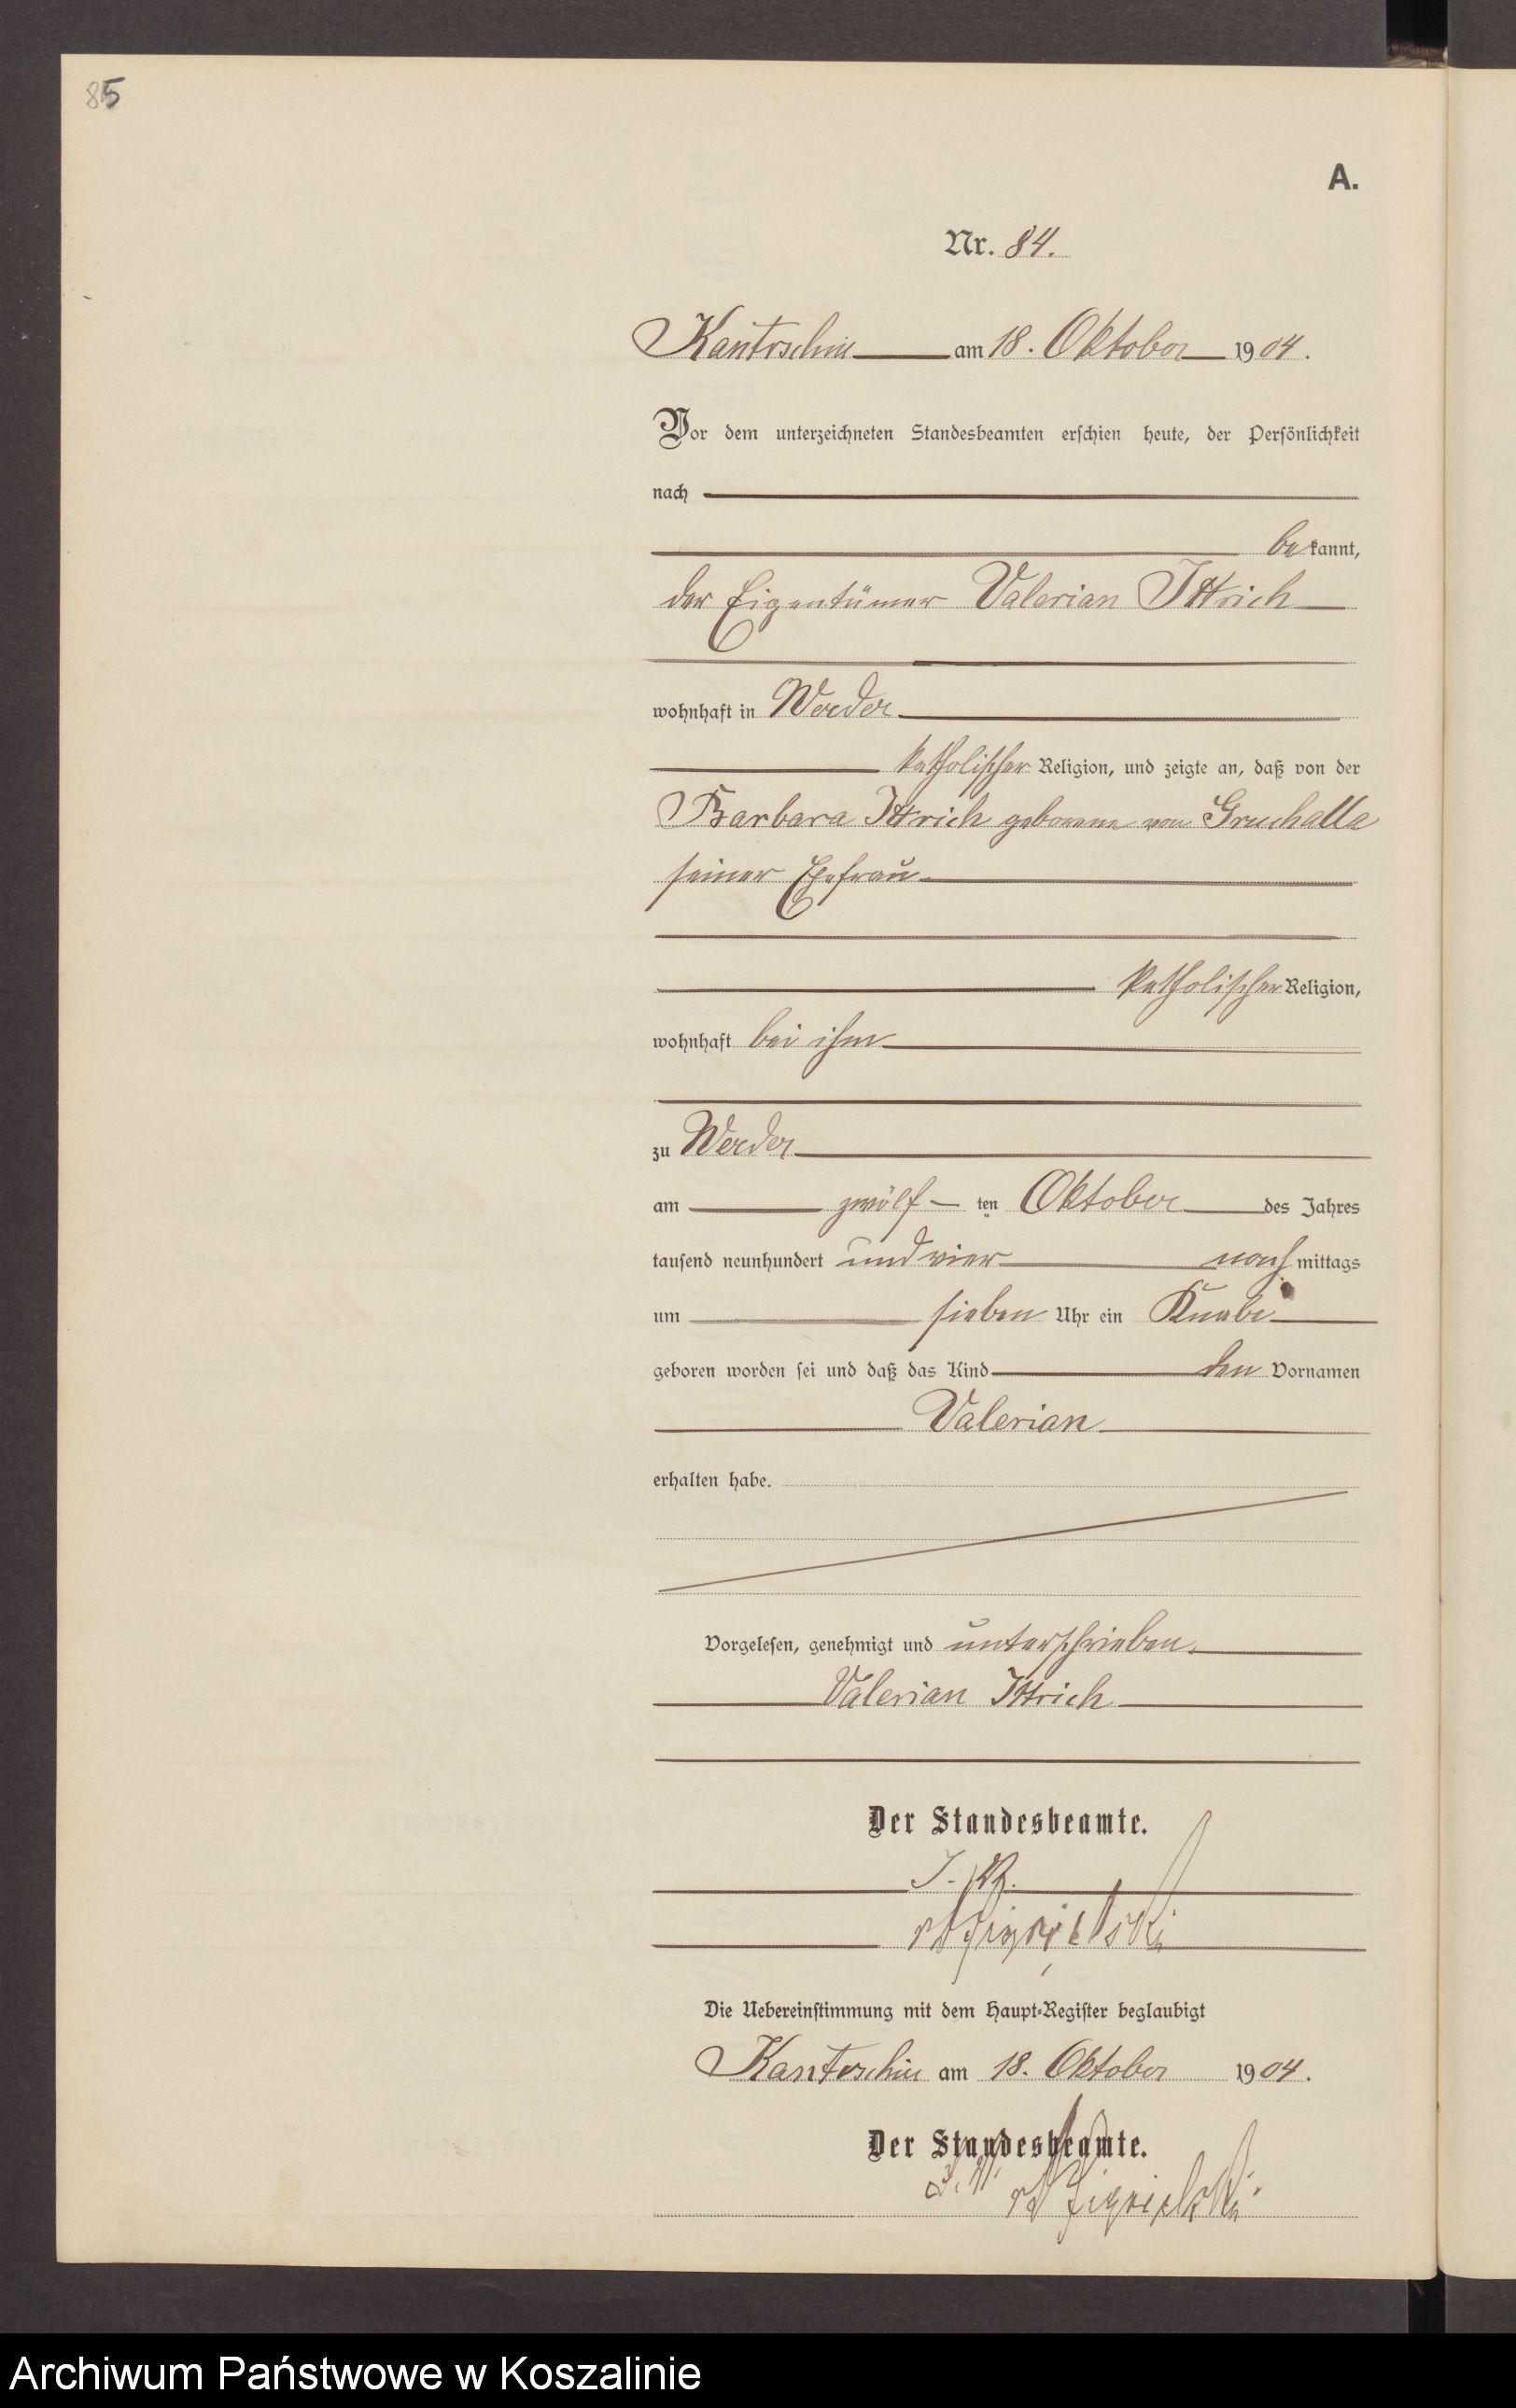 85
A.
Nr. 84.
Kantrschin am 18. Oktober 1904.
Vor dem unterzeichneten Standesbeamten erschien heute, der Persönlichkeit
nach
bekannt,
der Eigentümer Valerian Ittrich
wohnhaft in Werder
katholischer Religion, und zeigte an, daß von der
Barbara Ittrich geborene von Gruchalla
seiner Ehefrau
katholischer Religion,
wohnhaft bei ihm
zu Werder
am zwölf ten Oktober des Jahres
tausend neunhundert und vier nachmittags
um sieben Uhr ein Knabe
geboren worden sei und daß das Kind den Vornamen
Valerian
erhalten habe.
Vorgelesen, genehmigt und unterschrieben.
Valerian Ittrich
Der Standesbeamte.
Die Uebereinstimmung mit dem Haupt-Register beglaubigt
Kantrschin am 18. Oktober 1904.
Der Standesbeamte.
Archiwum Państwowe w Koszalinie